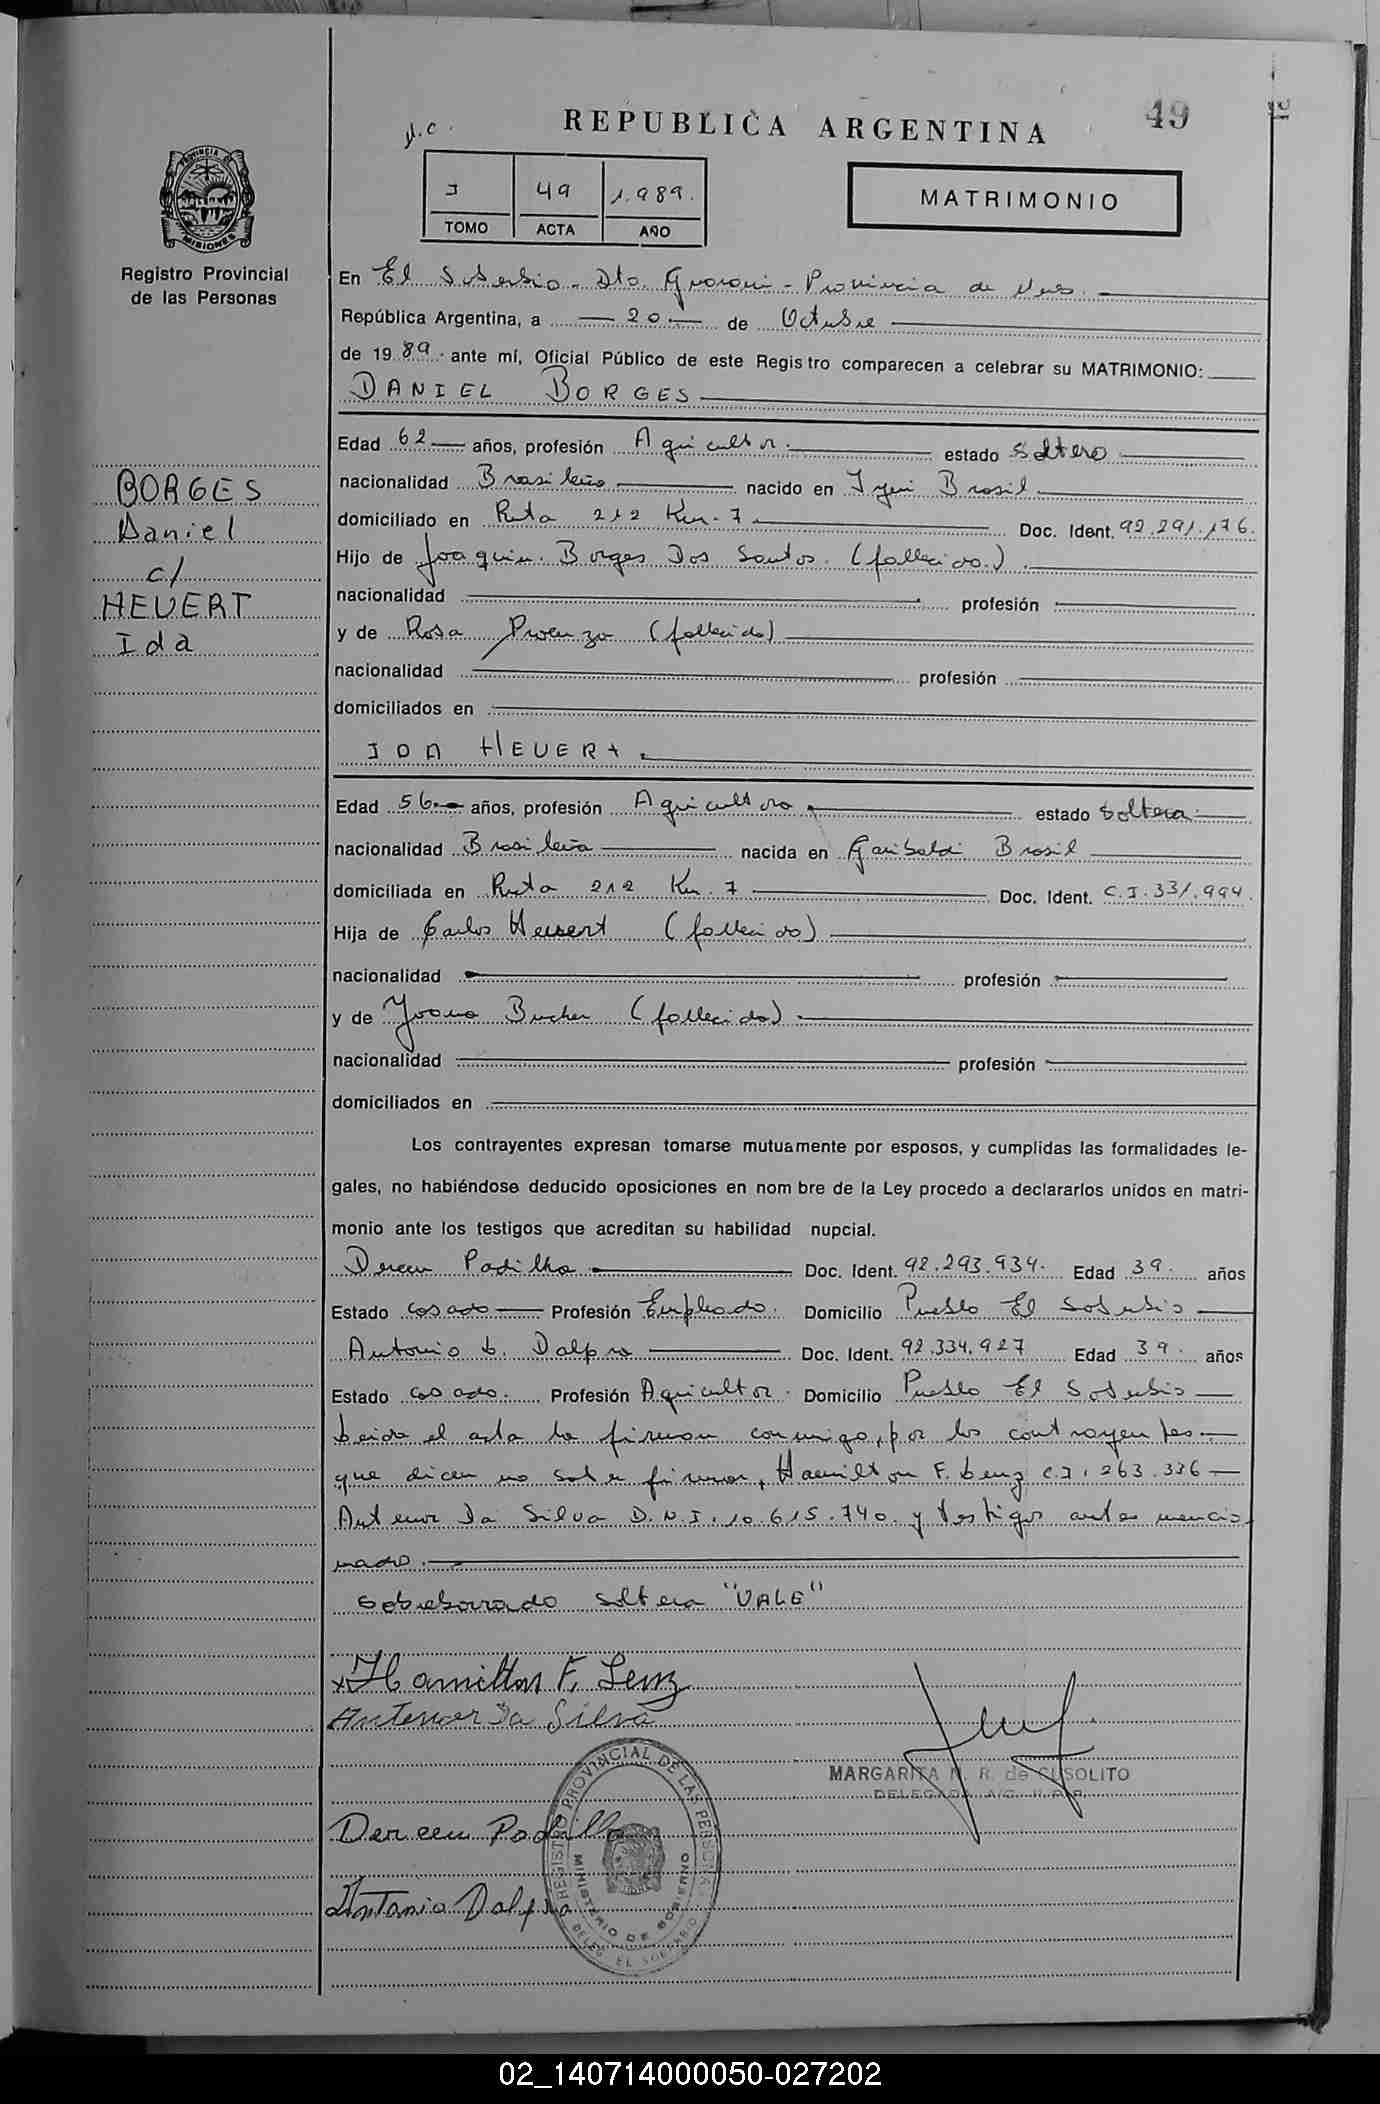 49
REPUBLICA ARGENTINA
I 49 1.989.
TOMO ACTA AÑO
MATRIMONIO
PROVINCIA DE MISIONES
Registro Provincial
de las Personas
En El Soberbio - Dto. Guarani - Provincia de Mnes.
República Argentina, a 20 de Octubre
de 1989. ante mí, Oficial Público de este Registro comparecen a celebrar su MATRIMONIO:
DANIEL BORGES
Edad 62 años, profesión Agricultor. estado soltero
nacionalidad Brasileño nacido en Brasil
domiciliado en Ruta 212 Km. 7 Doc. Ident. 92.291.176.
Hijo de Joaquin Borges Dos Santos. (fallecido.)
nacionalidad profesión
y de Rosa (fallecida)
nacionalidad profesión
domiciliados en
BORGES
Daniel
c/
HEVERT
Ida
IDA HEVERT.
Edad 56 años, profesión Agricultora estado soltera
nacionalidad Brasileña nacida en Garibaldi Brasil
domiciliada en Ruta 212 Km. 7 Doc. Ident. C.I. 331.994.
Hija de Carlos (fallecido)
nacionalidad profesión
y de Bucher (fallecida)
nacionalidad profesión
domiciliados en
Los contrayentes expresan tomarse mutuamente por esposos, y cumplidas las formalidades le-
gales, no habiéndose deducido oposiciones en nombre de la Ley procedo a declararlos unidos en matri-
monio ante los testigos que acreditan su habilidad nupcial.
Derceu Padilha Doc. Ident. 92.293.934. Edad 39. años
Estado casado Profesión Empleado. Domicilio Pueblo El Soberbio
Antonio L. Dalpra Doc. Ident. 92.334.927 Edad 39. años
Estado casado. Profesión Agricultor. Domicilio Pueblo El Soberbio
Leida el acta la firman conmigo, por los contrayentes
que dicen no saber firmar, Hamilton F. Lenz C.I. 263.336
Antenor Da Silva D.N.I. 10.615.740. y testigos antes mencio
nados.
Sobreborrado soltera "VALE"
x Hamilton F. Lenz
Antenor Da Silva
MARGARITA M. R. de CUSOLITO
DELEGADA A/C. R.P.P.
Derceu Padilha
Antonio Dalpra
REGISTRO PROVINCIAL DE LAS PERSONAS
MINISTERIO DE GOBIERNO
DELEG. EL SOBERBIO
02_140714000050-027202